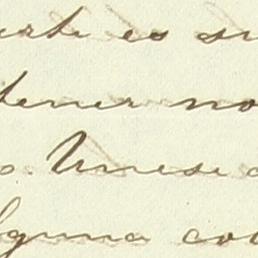 es su
tener no
o. Unese a
lguna co